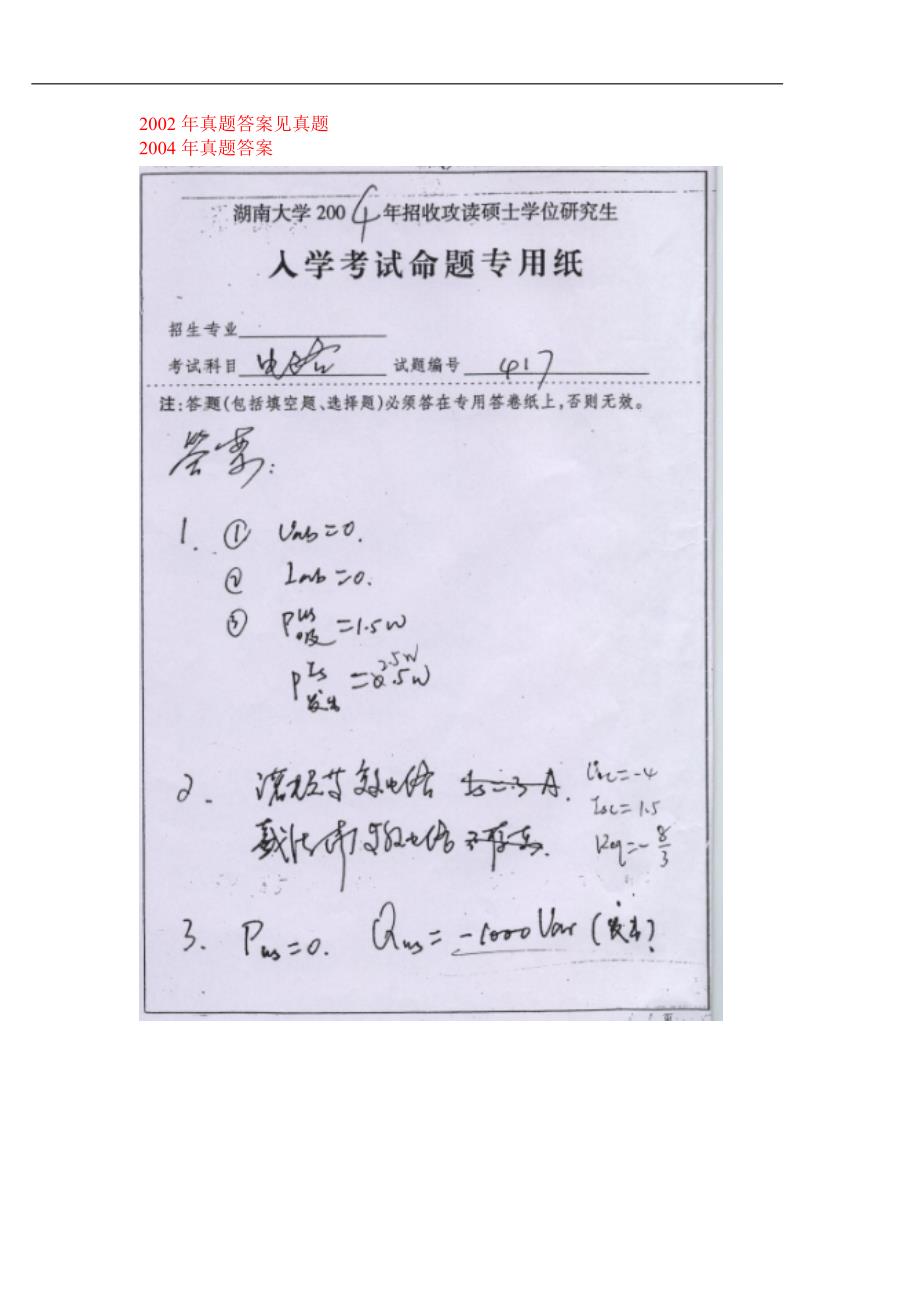 2002 年真题答案见真题
2004 年真题答案
湖南大学 2004年招收攻读硕士学位研究生
入学考试命题专用纸
招生专业
考试科目 电路 试题编号 417
注:答题(包括填空题、选择题)必须答在专用答卷纸上,否则无效。
答案:
1. ① Uab=0.
② Iab=0.
③ P吸^Us=1.5W
P发出^Is= 2.5W
2. 诺顿等效电路 Is=3A. Uoc=-4
戴维南等效电路不存在. Isc=1.5
Req=-8/3
3. Pus=0. Qus=-1000Var (发出)